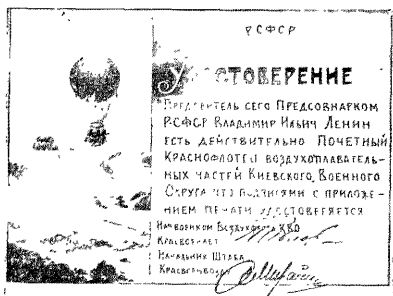 РСФСР
УДОСТОВЕРЕНИЕ
ПРЕДЪЯВИТЕЛЬ СЕГО ПРЕДСОВНАРКОМ
РСФСР ВЛАДИМИР ИЛЬИЧ ЛЕНИН
ЕСТЬ ДЕЙСТВИТЕЛЬНО ПОЧЕТНЫЙ
КРАСНОФЛОТЕЦ ВОЗДУХОПЛАВАТЕЛЬ-
НЫХ ЧАСТЕЙ КИЕВСКОГО ВОЕННОГО
ОКРУГА ЧТО ПОДПИСЯМИ С ПРИЛОЖЕ-
НИЕМ ПЕЧАТИ УДОСТОВЕРЯЕТСЯ
КВО
КРАСВОЕНЛЕТ
НАЧАЛЬНИК ШТАБА